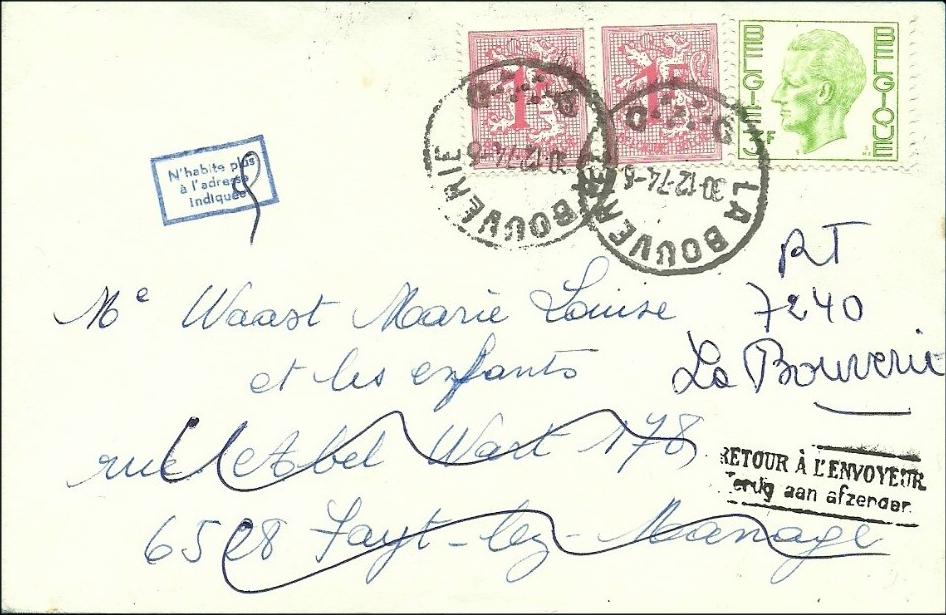 1F
1F
BELGIQUE
BELGIË
F
LA BOUVERIE
30-12-74-6
LA BOUVERIE
30-12-74-6
N'habite plus
à l'adresse
indiquée
RT
7240
La Bouverie
Me Waast Marie Louise
et les enfants
rue Abel Wart 178
6528 Fayt-lez-Manage
RETOUR À L'ENVOYEUR
Terug aan afzender